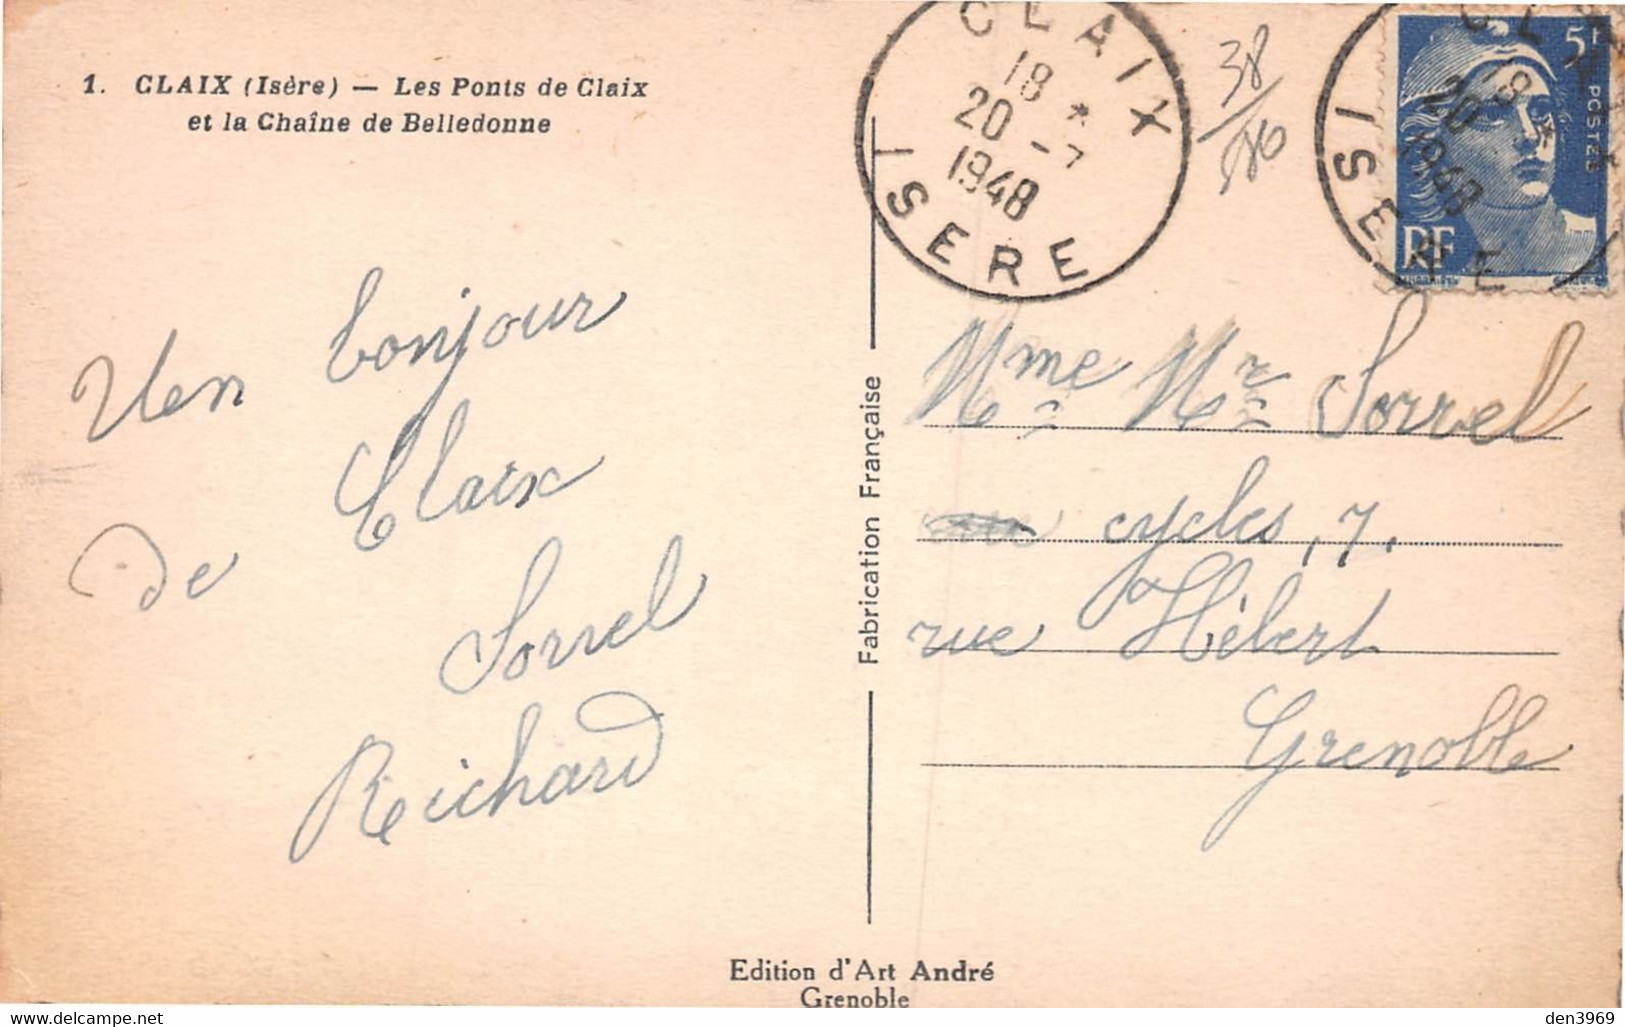 1. CLAIX (Isère) — Les Ponts de Claix
et la Chaîne de Belledonne
CLAIX
18 *
20 - 7
1948
ISERE
38
CLAIX
18 *
20
1948
ISERE
5F
POSTES
RF
Un bonjour
de Claix
Sorrel
Richard
Fabrication Française
Mme Mr Sorrel
cycles, 7.
rue Hébert
Grenoble
Edition d'Art André
Grenoble
www.delcampe.net
den3969